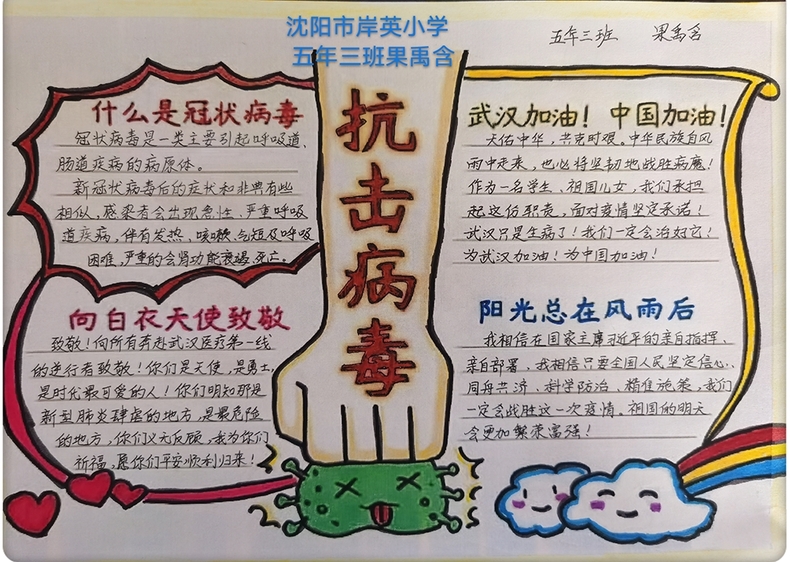 沈阳市岸英小学
五年三班果禹含
五年三班 果禹含
抗击病毒
什么是冠状病毒
冠状病毒是一类主要引起呼吸道、
肠道疾病的病原体。
新冠状病毒后的症状和非典有些
相似,感染者会出现急性、严重呼吸
道疾病,伴有发热、咳嗽、气短及呼吸
困难,严重的会肾功能衰竭、死亡。
向白衣天使致敬
致敬!向所有奔赴武汉医疗第一线
的逆行者致敬!你们是天使,是勇士,
是时代最可爱的人!你们明知那是
新型肺炎肆虐的地方,是最危险
的地方,你们义无反顾,我为你们
祈福,愿你们平安顺利归来!
武汉加油!中国加油!
天佑中华,共克时艰。中华民族自风
雨中走来,也必将坚韧地战胜病魔!
作为一名学生、祖国儿女,我们承担
起这份职责,面对疫情坚定承诺!
武汉只是生病了!我们一定会治好它!
为武汉加油!为中国加油!
阳光总在风雨后
我相信在国家主席习近平的亲自指挥、
亲自部署,我相信只要全国人民坚定信心、
同舟共济、科学防治、精准施策,我们
一定会战胜这一次疫情。祖国的明天
会更加繁荣富强!